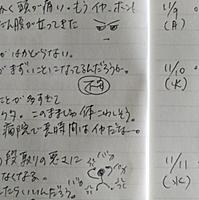 かく頭が痛い。もうイヤ、ホント
だん腹が立ってきた
11/9
(月)
がはかどらない。
がまずいことになってるんだろうか。
不安
11/10
(火)
ことが多すぎて
クタクタ。このままじゃ体こわしそう。
病院で長時間はイヤだなー。
段取りの悪さに
なくなる。
したらいいんだろう。
11/11
(水)